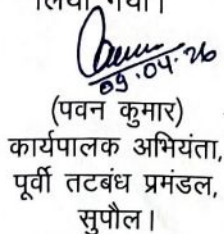 लिया गया।
09.04.26
(पवन कुमार)
कार्यपालक अभियंता,
पूर्वी तटबंध प्रमंडल,
सुपौल।